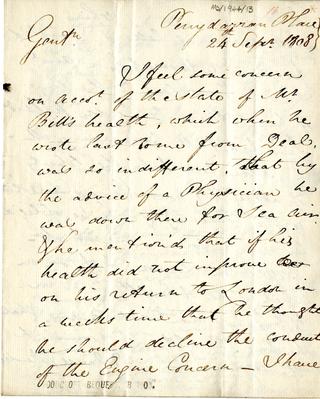 Penydarran Place
24th Sepr. 1808
Gentn
I feel some concern
on accot. of the state of Mr
Bell's health, which when he
wrote last to me from Deal,
was so indifferent, that by
the advice of a Physician he
was down there for Sea air
& he mention'd that if his
health did not improve
on his return to London in
a weeks time that he thought
he should decline the conduct
of the Engine Concern – I have
BEQUEST